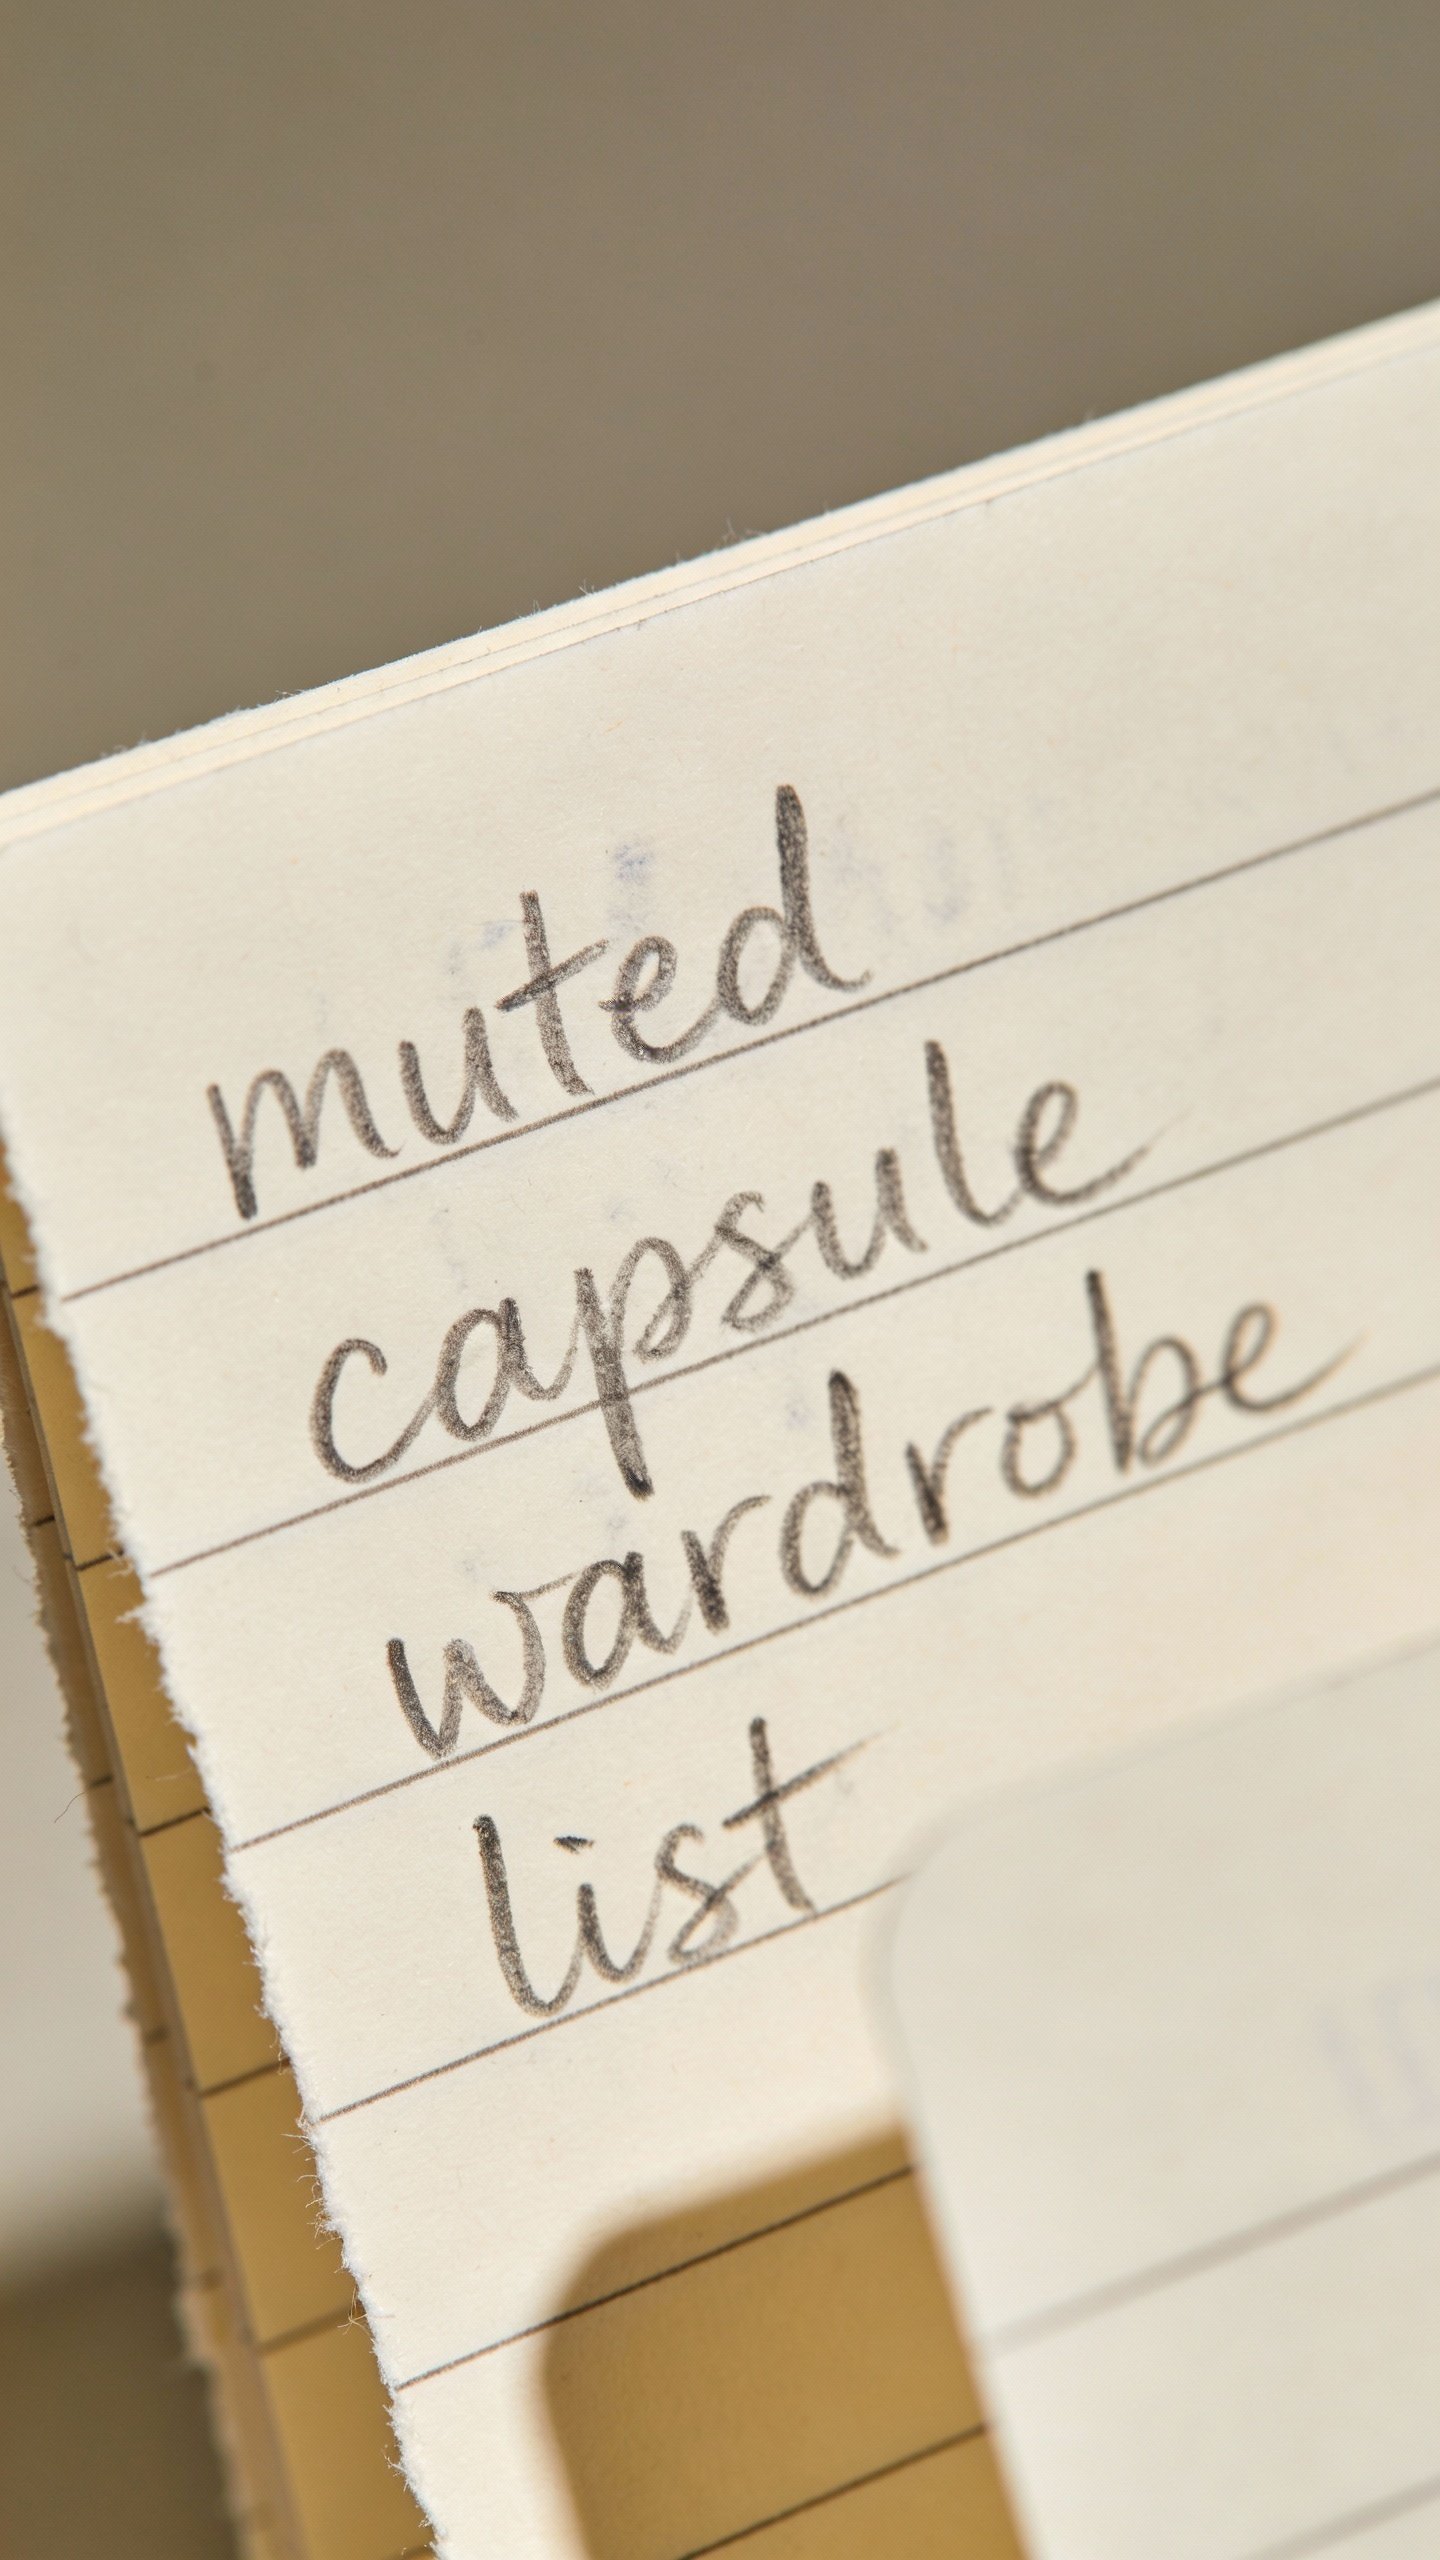 muted
capsule
wardrobe
list